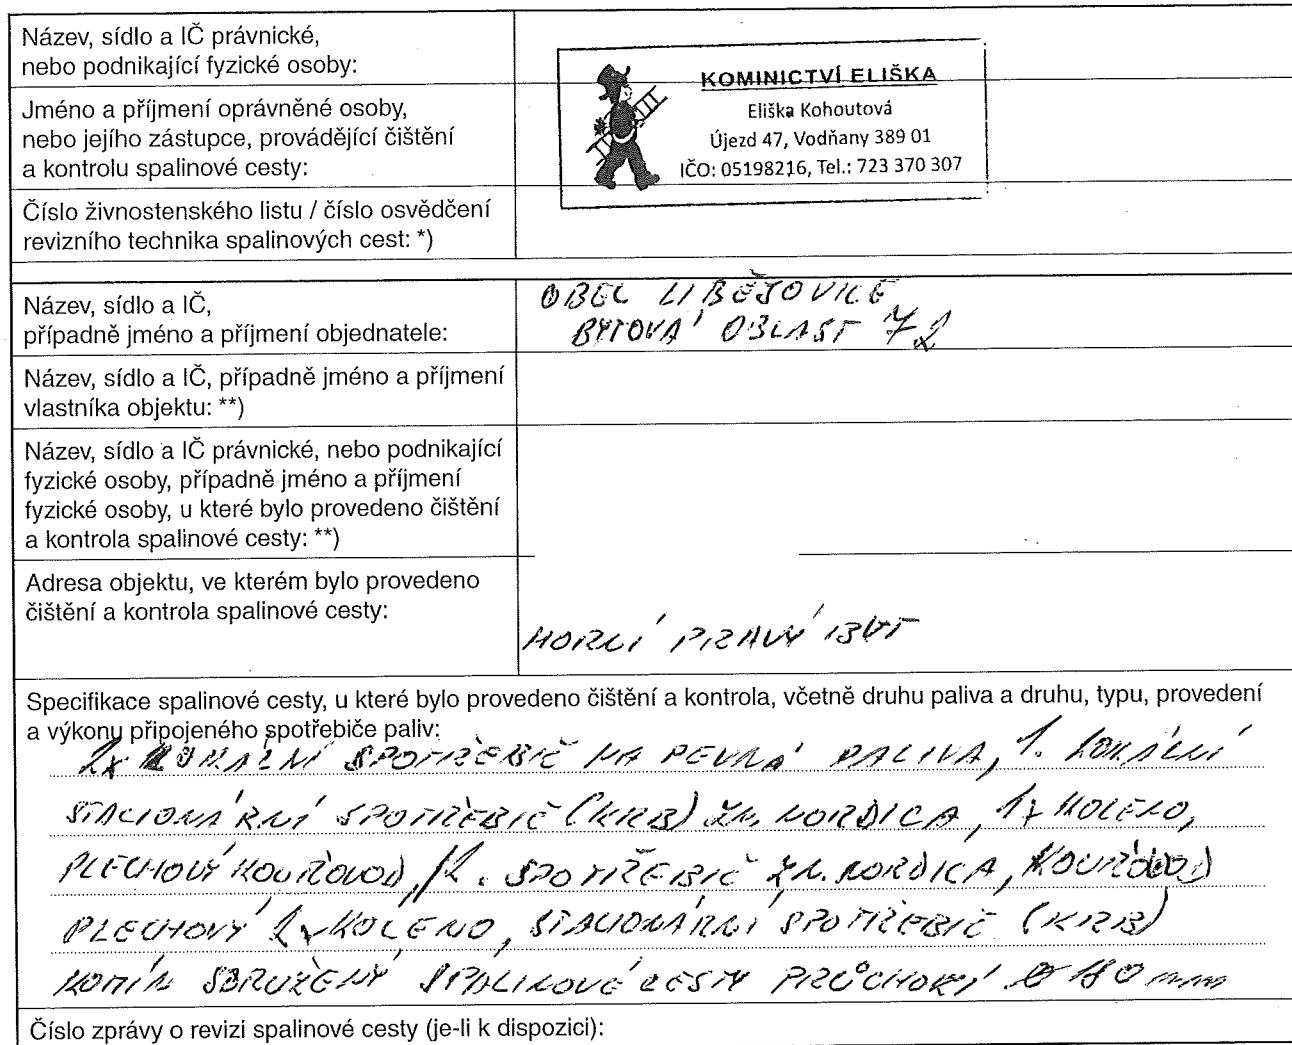 Název, sídlo a IČ právnické,
nebo podnikající fyzické osoby:
KOMINICTVÍ ELIŠKA
Eliška Kohoutová
Újezd 47, Vodňany 389 01
IČO: 05198216, Tel.: 723 370 307
Jméno a příjmení oprávněné osoby,
nebo jejího zástupce, provádějící čištění
a kontrolu spalinové cesty:
Číslo živnostenského listu / číslo osvědčení
revizního technika spalinových cest: *)
Název, sídlo a IČ,
případně jméno a příjmení objednatele:
OBEC LIBĚJOVICE
BYTOVÁ OBLAST 72
Název, sídlo a IČ, případně jméno a příjmení
vlastníka objektu: **)
Název, sídlo a IČ právnické, nebo podnikající
fyzické osoby, případně jméno a příjmení
fyzické osoby, u které bylo provedeno čištění
a kontrola spalinové cesty: **)
Adresa objektu, ve kterém bylo provedeno
čištění a kontrola spalinové cesty:
HORNÍ PRAVÝ BYT
Specifikace spalinové cesty, u které bylo provedeno čištění a kontrola, včetně druhu paliva a druhu, typu, provedení
a výkonu připojeného spotřebiče paliv:
2x LOKÁLNÍ SPOTŘEBIČ NA PEVNÁ PALIVA, 1. LOKÁLNÍ
STACIONÁRNÍ SPOTŘEBIČ (KRB) ZN. NORDICA, 1x KOLENO,
PLECHOVÝ KOUŘOVOD, /2. SPOTŘEBIČ ZN. NORDICA, KOUŘOVOD
PLECHOVÝ 1x KOLENO, STACIONÁRNÍ SPOTŘEBIČ (KRB)
KOMÍN SDRUŽENÝ SPALINOVÉ CESTY PRŮCHOZÍ Ø 180 mm
Číslo zprávy o revizi spalinové cesty (je-li k dispozici):